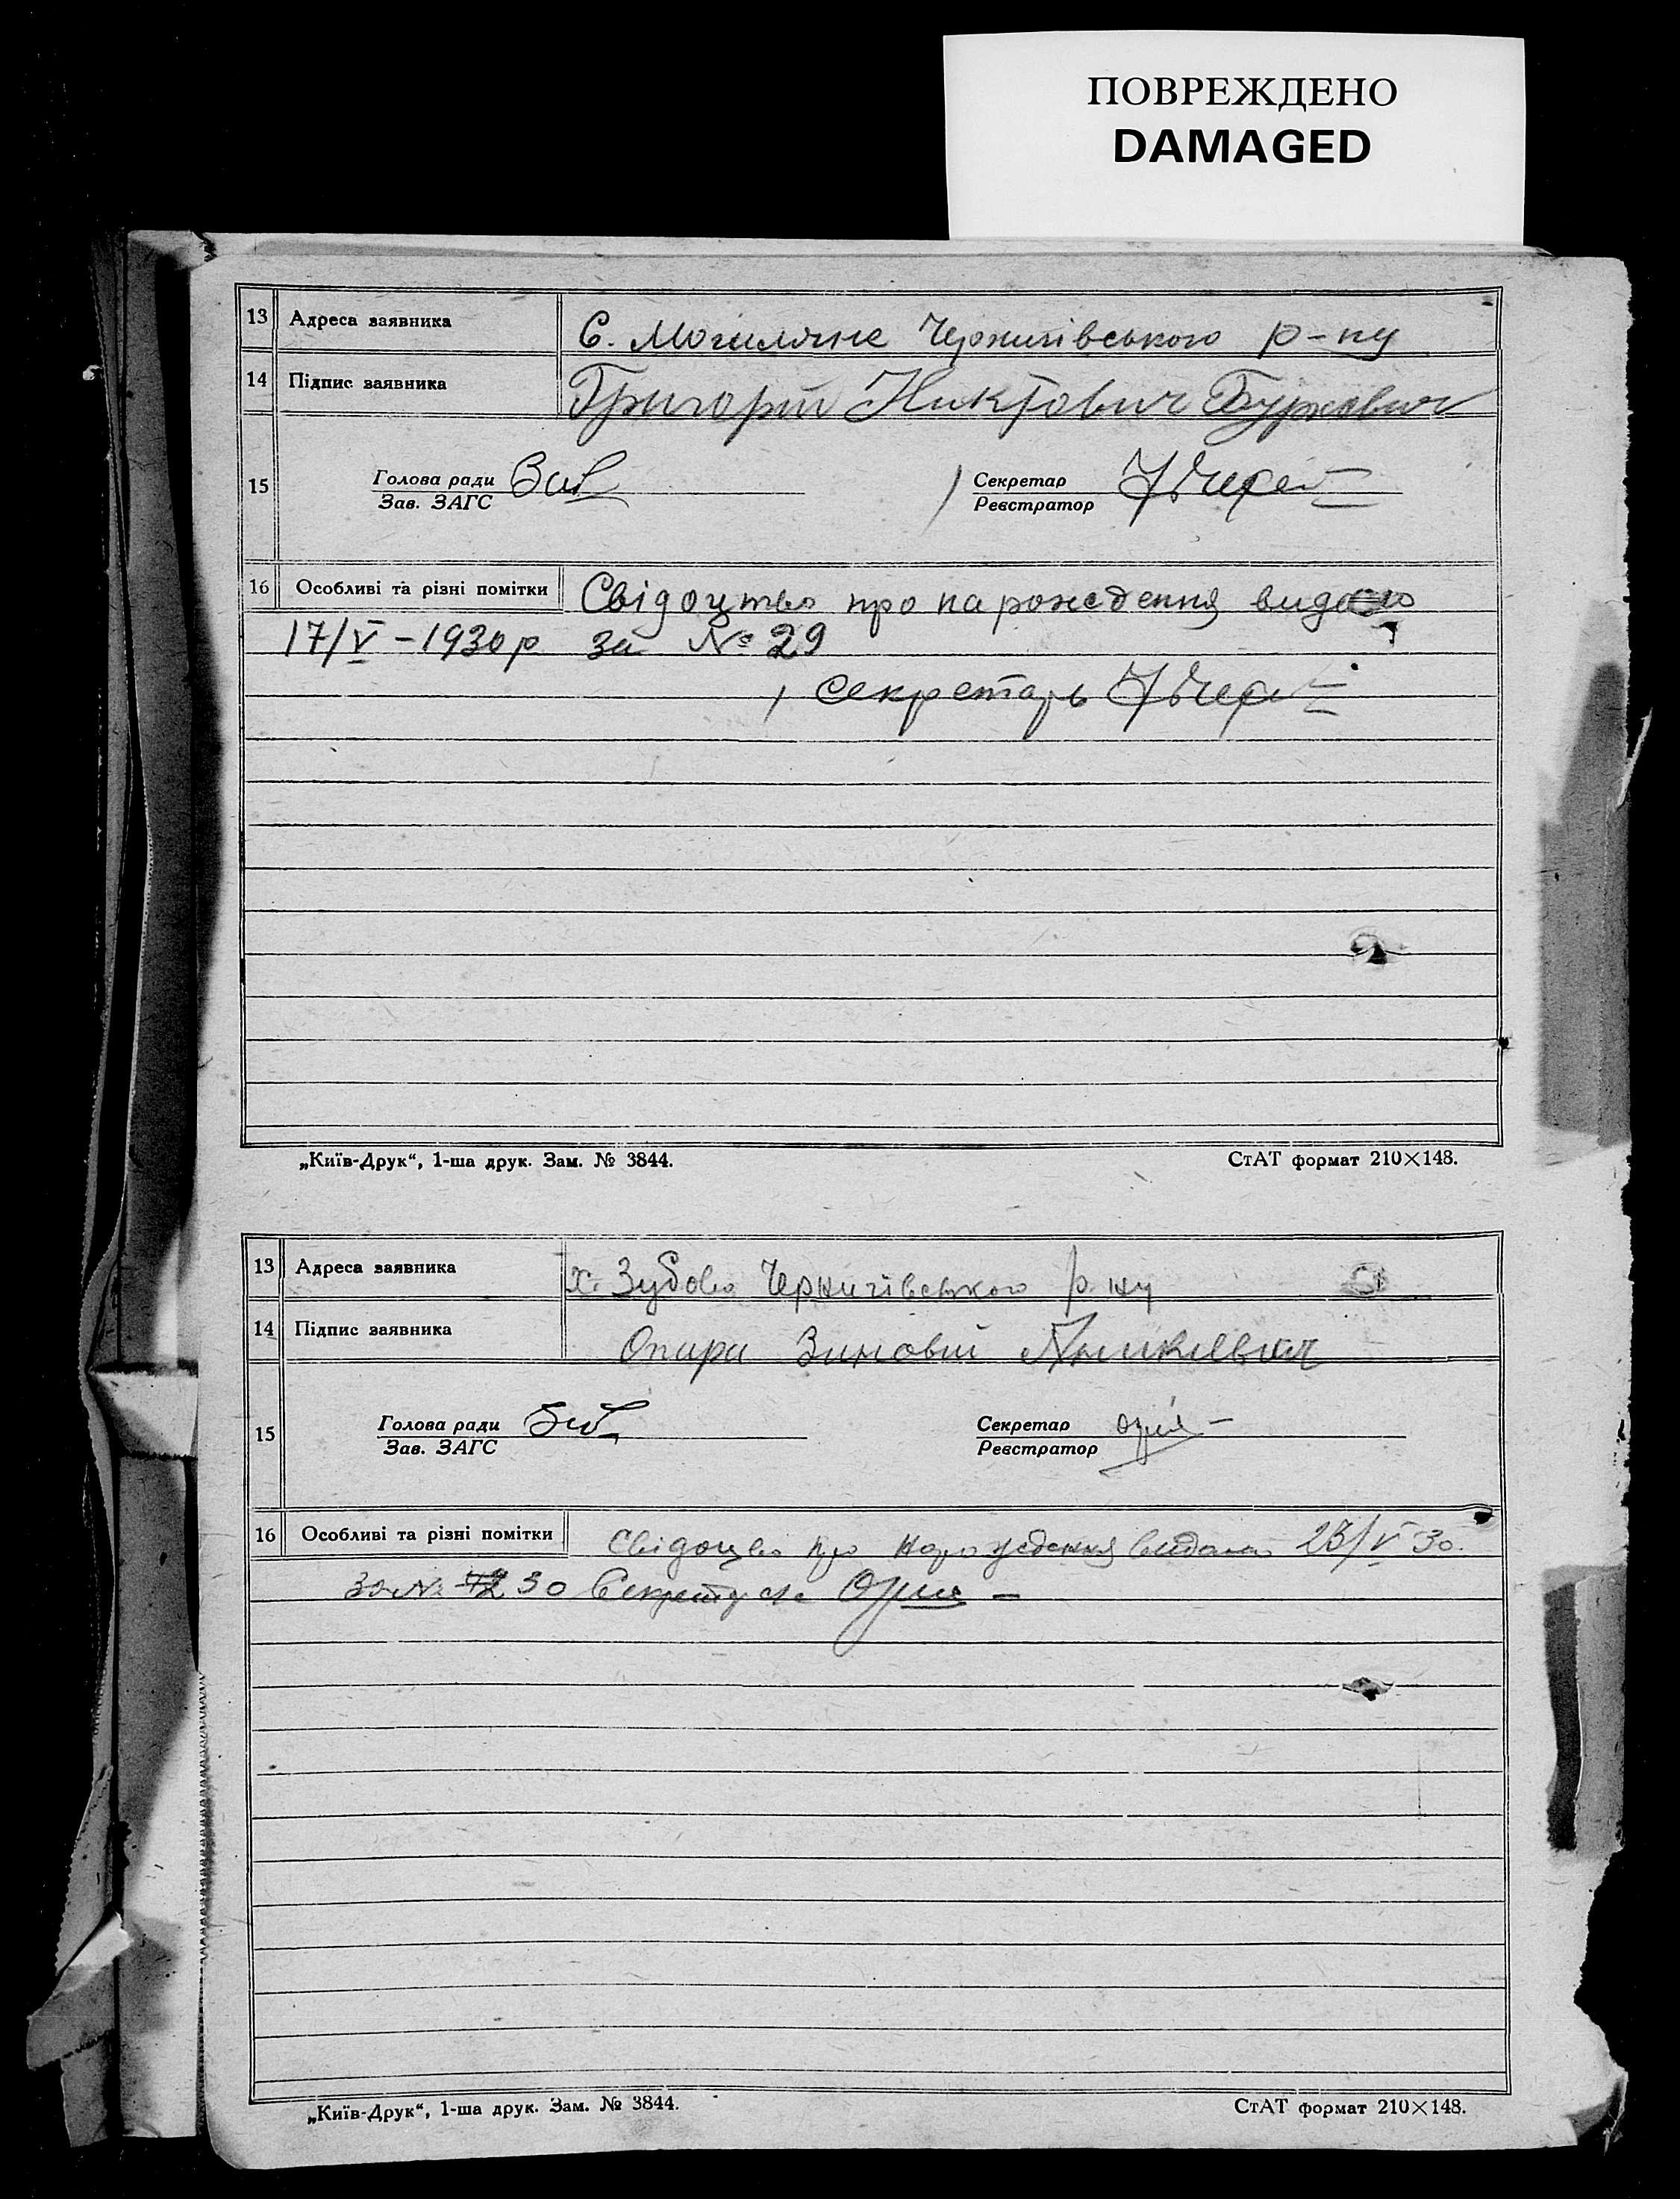 ПОВРЕЖДЕНО
DAMAGED
13 Адреса заявника С. Могиляне Чернигівського р-ну
14 Підпис заявника Григорій
15 Голова ради Секретар
Зав. ЗАГС Реєстратор
16 Особливі та різні помітки Свідоцтво про нарождення видано
17/V – 1930 р. за № 29
Секретарь
„Київ-Друк“, 1-ша друк. Зам. № 3844. СтАТ формат 210×148.
13 Адреса заявника х. Чернигівського р-ну
14 Підпис заявника Опара Зиновій
15 Голова ради Секретар
Зав. ЗАГС Реєстратор
16 Особливі та різні помітки Свідоцво про нарождення видано 23/V 30.
за № 30
„Київ-Друк“, 1-ша друк. Зам. № 3844. СтАТ формат 210×148.